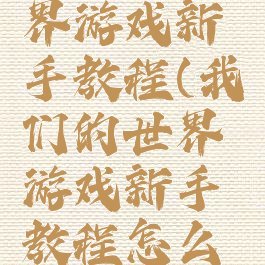 界游戏新
手教程(我
们的世界
游戏新手
教程怎么